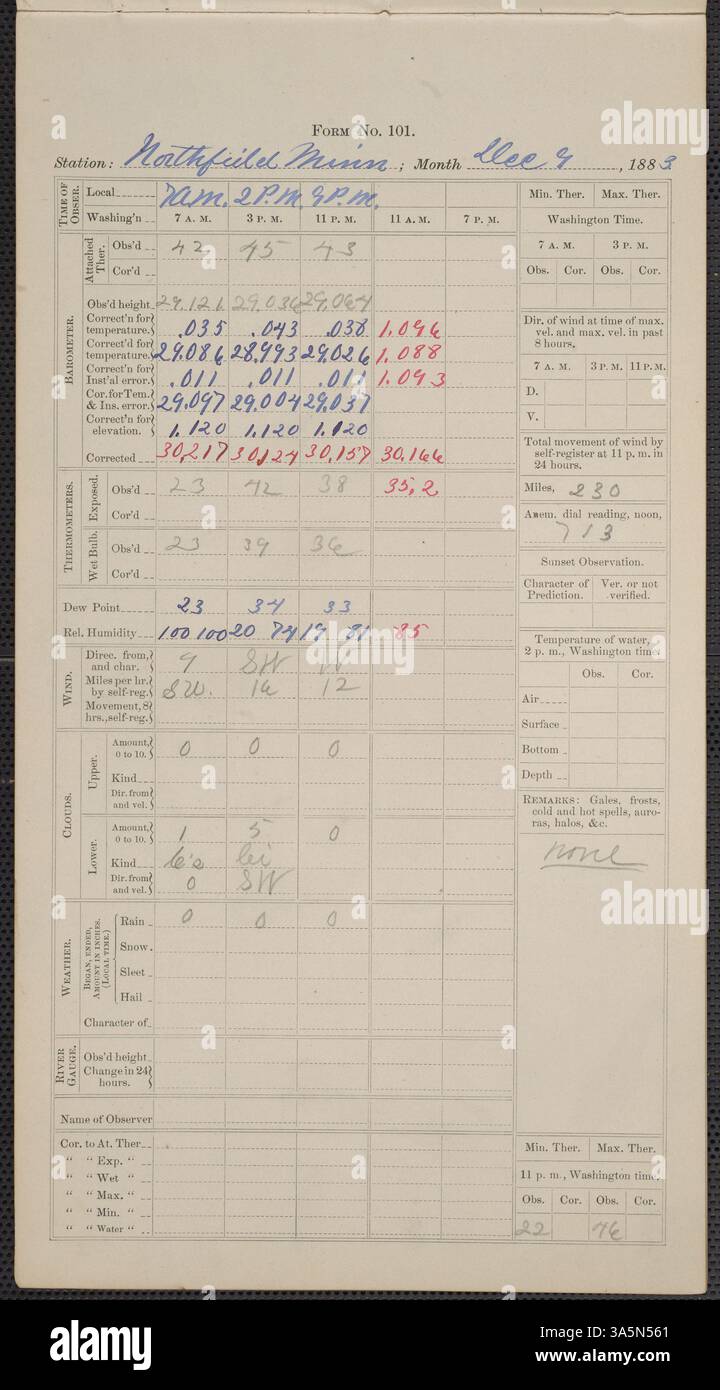 Form No. 101.
Station: Northfield Minn ; Month Dec 9 , 1883.
TIME OF OBSER.
Local 7 a.m. 2 P.M. 9 P.M.
Washing'n 7 A. M. 3 P. M. 11 P. M. 11 A. M. 7 P. M.
BAROMETER.
Attached Ther.
Obs'd 42 45 43
Cor'd
Obs'd height 29.121 29.036 29.064
Correct'n for temperature. .035 .043 .038 1.096
Correct'd for temperature. 29.086 28.993 29.026 1.088
Correct'n for Inst'al error. .011 .011 .011 1.093
Cor. for Tem. & Ins. error. 29.097 29.004 29.037
Correct'n for elevation. 1.120 1.120 1.120
Corrected 30.217 30.124 30.157 30.166
THERMOMETERS.
Exposed.
Obs'd 23 42 38 35.2
Cor'd
Wet Bulb.
Obs'd 23 39 36
Cor'd
Dew Point 23 34 33
Rel. Humidity 100 100 20 74 19 81 85
WIND.
Direc. from, and char. 9 SW W
Miles per hr. by self-reg. SW. 12
Movement, 8 hrs., self-reg.
CLOUDS.
Upper.
Amount, 0 to 10. 0 0 0
Kind
Dir. from and vel.
Lower.
Amount, 0 to 10. 1 5 0
Kind
Dir. from and vel. 0 SW
WEATHER.
BEGAN, ENDED, AMOUNT IN INCHES. (LOCAL TIME.)
Rain 0 0 0
Snow.
Sleet
Hail
Character of
RIVER GAUGE.
Obs'd height
Change in 24 hours.
Name of Observer
Cor. to At. Ther
" " Exp. "
" " Wet "
" " Max. "
" " Min. "
" " Water "
Min. Ther. Max. Ther.
Washington Time.
7 A. M. 3 P. M.
Obs. Cor. Obs. Cor.
Dir. of wind at time of max. vel. and max. vel. in past 8 hours.
7 A. M. 3 P. M. 11 P. M.
D.
V.
Total movement of wind by self-register at 11 p. m. in 24 hours.
Miles, 230
Anem. dial reading, noon,
713
Sunset Observation.
Character of Prediction. Ver. or not verified.
Temperature of water, 2 p. m., Washington time.
Obs. Cor.
Air
Surface
Bottom
Depth
REMARKS: Gales, frosts, cold and hot spells, auroras, halos, &c.
none
Min. Ther. Max. Ther.
11 p. m., Washington time.
Obs. Cor. Obs. Cor.
22 46
alamy
Image ID: 3A5N561
www.alamy.com